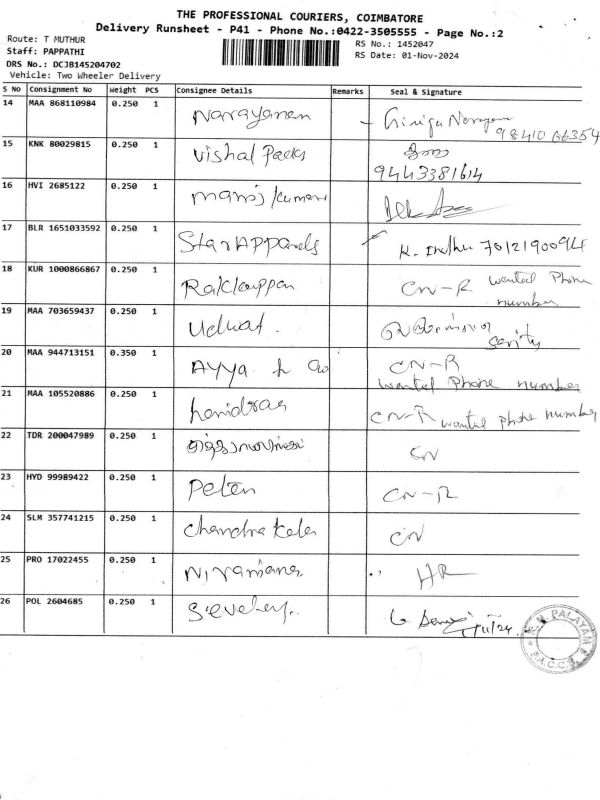 THE PROFESSIONAL COURIERS, COIMBATORE
Delivery Runsheet - P41 - Phone No.:0422-3505555 - Page No.:2
Route: T MUTHUR
RS No.: 1452047
Staff: PAPPATHI
RS Date: 01-Nov-2024
DRS No.: DCJB145204702
Vehicle: Two Wheeler Delivery
S No Consignment No Weight PCS Consignee Details Remarks Seal & Signature
14 MAA 868110984 0.250 1 Narayanan
15 KNK 80029815 0.250 1 Vishal Packs
9443381614
16 HVI 2685122 0.250 1 manoj kumar
17 BLR 1651033592 0.250 1 Star Apparels K. 7812190094
18 KUR 1000866867 0.250 1 Rakkiappan CN-R wanted Phone
number
19 MAA 703659437 0.250 1
20 MAA 944713151 0.350 1 AYYA & Co CN-R
wanted Phone number
21 MAA 105520886 0.250 1 CN-R wanted phone number
22 TDR 200047989 0.250 1 CN
23 HYD 99989422 0.250 1 Peter CN-R
24 SLM 357741215 0.250 1 chandra kala CN
25 PRO 17022455 0.250 1 Niranjana HR
26 POL 2604685 0.250 1
PALAYAM
P.A.C.C.S